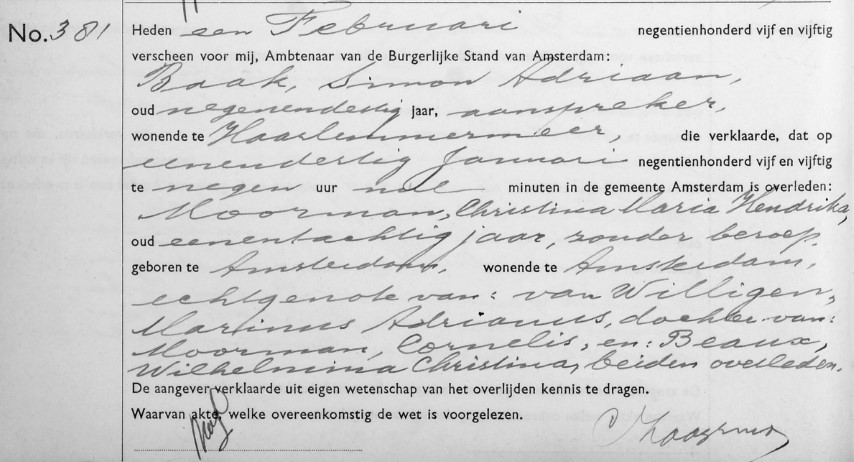 No. 381
Heden een Februari negentienhonderd vijf en vijftig
verscheen voor mij, Ambtenaar van de Burgerlijke Stand van Amsterdam:
Baak, Simon Adriaan,
oud negenendertig jaar, aanspreker,
wonende te Haarlemmermeer, die verklaarde, dat op
eenendertig Januari negentienhonderd vijf en vijftig
te negen uur nul minuten in de gemeente Amsterdam is overleden:
Moorman, Christina Maria Hendrika,
oud eenentachtig jaar, zonder beroep,
geboren te Amsterdam, wonende te Amsterdam,
echtgenote van: van Willigen,
Marinus Adrianus, dochter van:
Moorman, Cornelis, en: Beaux,
Wilhelmina Christina, beiden overleden.
De aangever verklaarde uit eigen wetenschap van het overlijden kennis te dragen.
Waarvan akte, welke overeenkomstig de wet is voorgelezen.